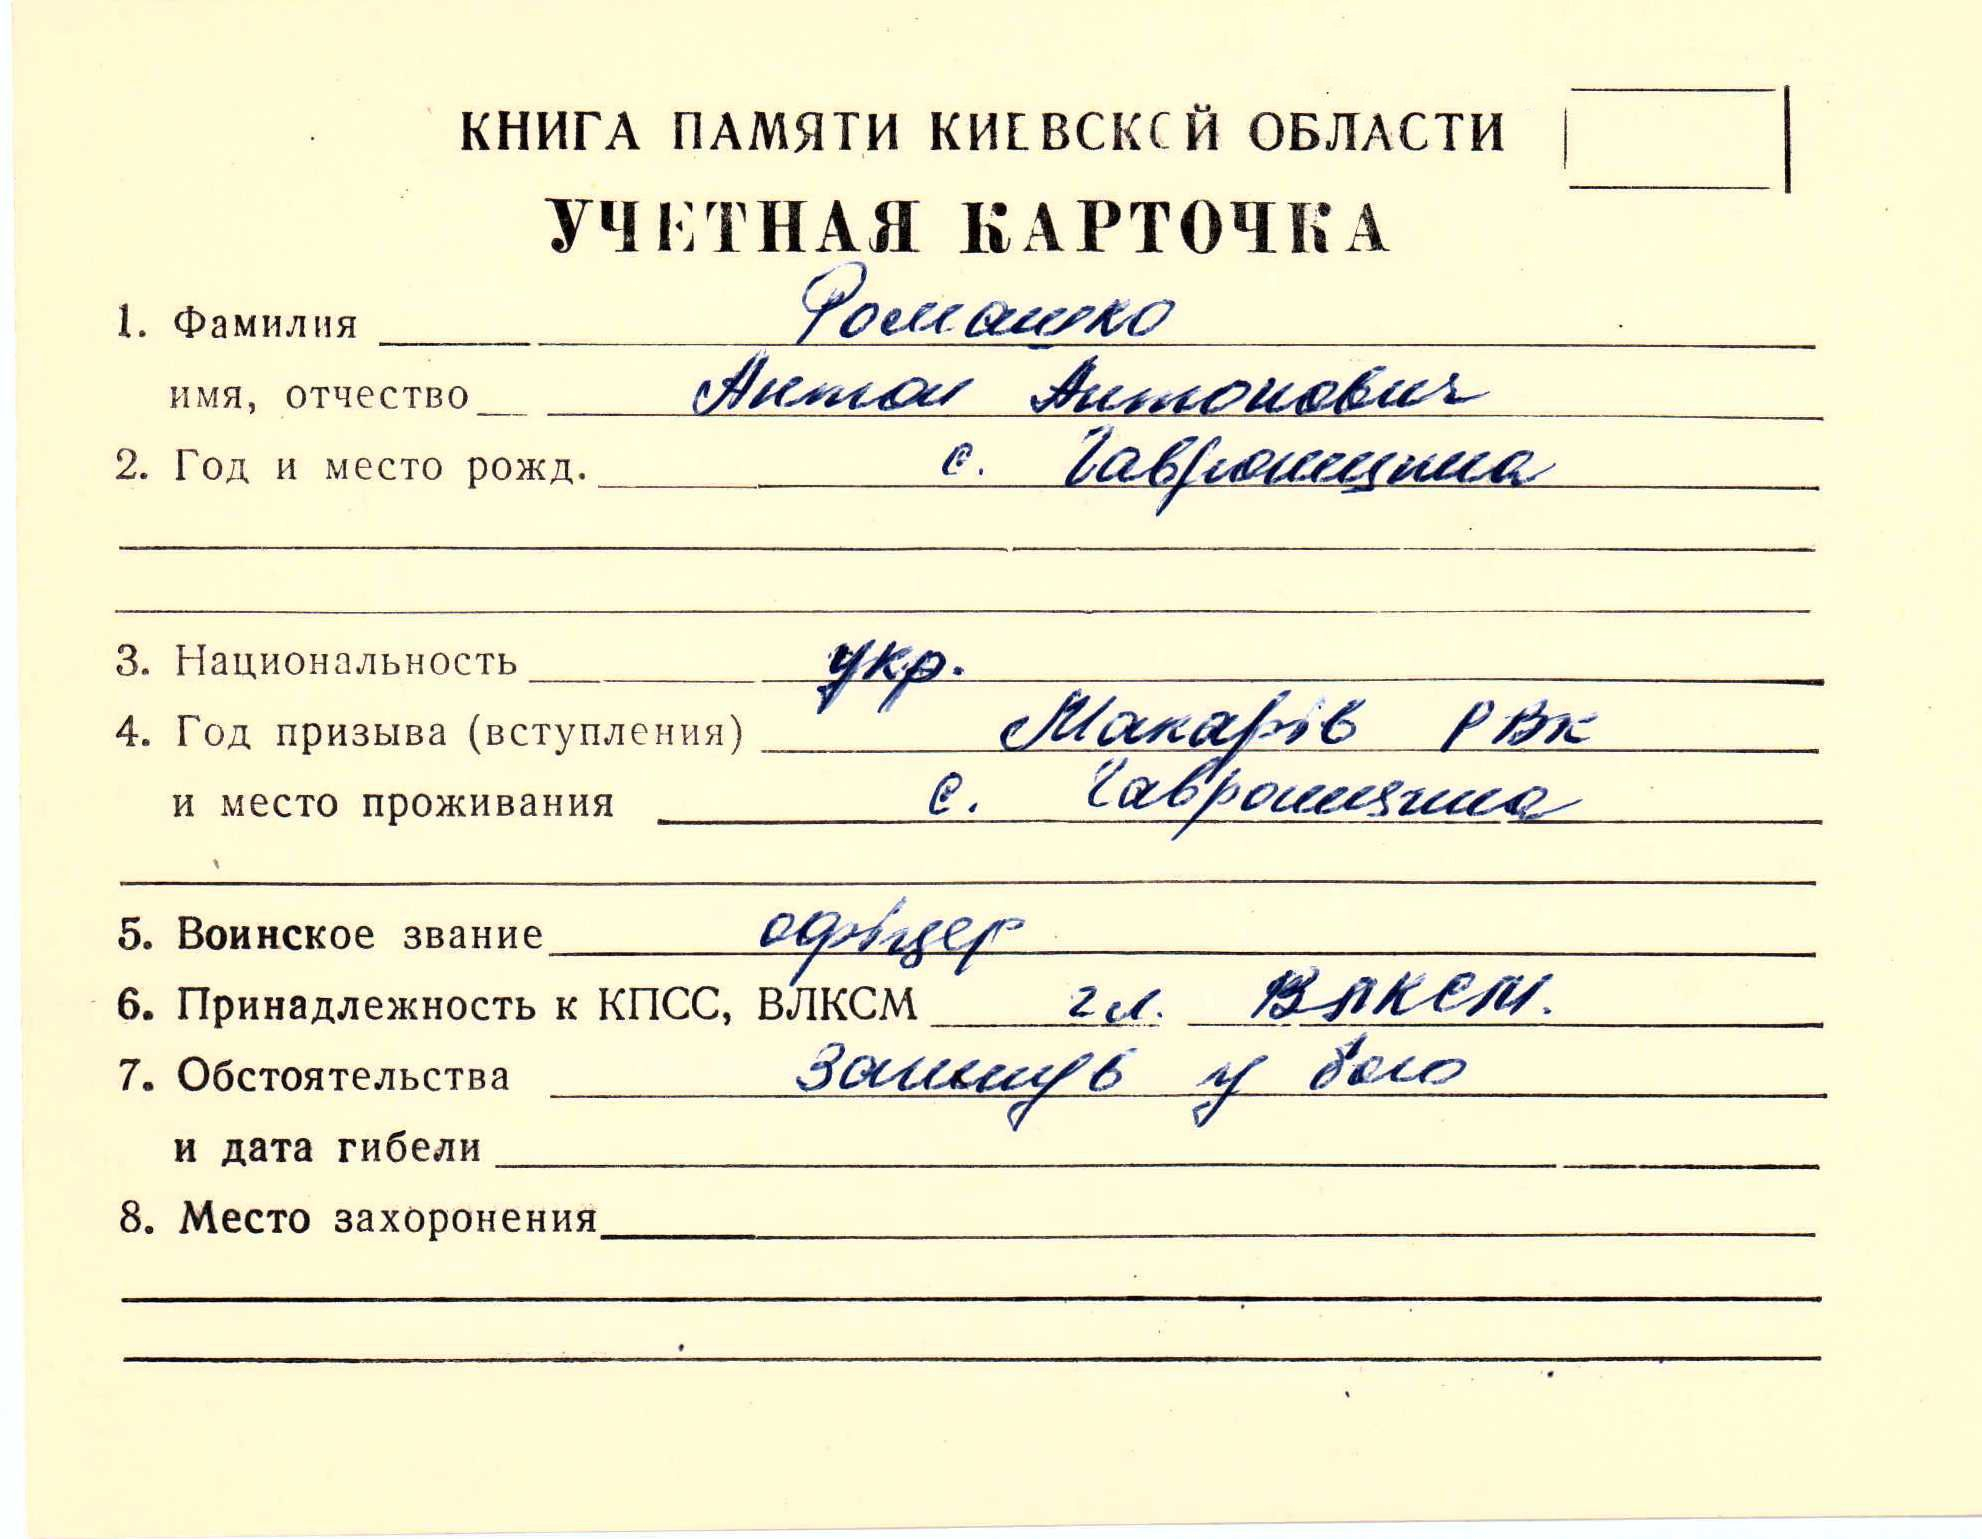 КНИГА ПАМЯТИ КИЕВСКОЙ ОБЛАСТИ
УЧЕТНАЯ КАРТОЧКА
1. Фамилия Ромашко
имя, отчество Антон Антонович
2. Год и место рожд. с. Гавронщина
3. Национальность укр.
4. Год призыва (вступления) Макарів РВК
и место проживания с. Гавронщина
5. Воинское звание офіцер
6. Принадлежность к КПСС, ВЛКСМ чл. ВЛКСМ.
7. Обстоятельства Загинув у бою
и дата гибели
8. Место захоронения